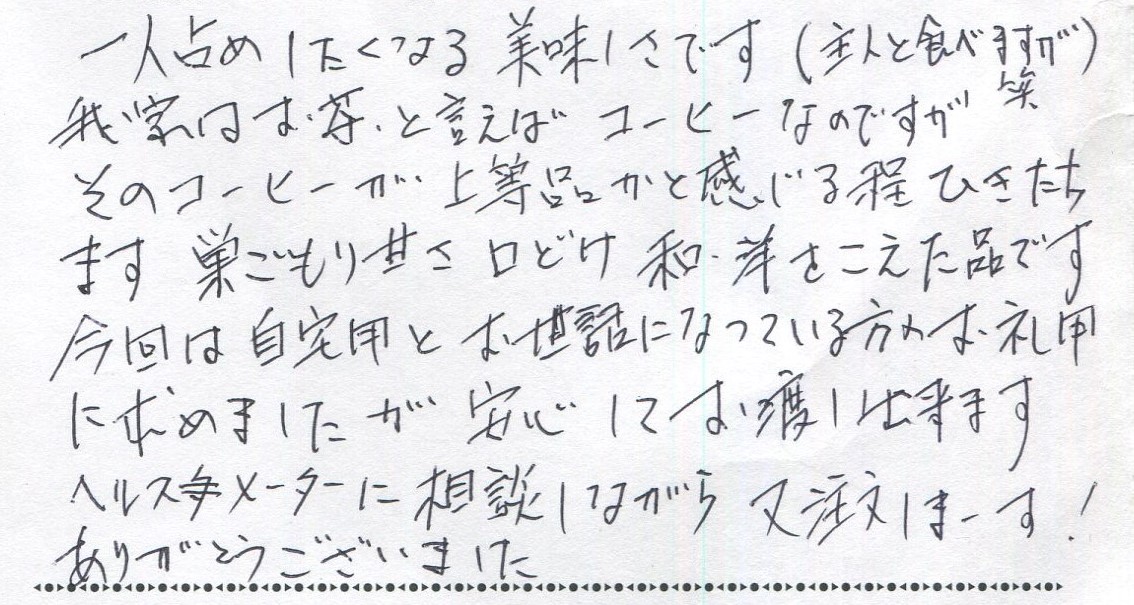 一人占めしたくなる美味しさです(主人と食べますが)
笑
我家はお茶、と言えばコーヒーなのですが
そのコーヒーが上等品かと感じる程ひきたち
ます 巣ごもり甘さ口どけ和・洋をこえた品です
今回は自宅用とお世話になっている方のお礼用
に求めましたが安心してお渡し出来ます
ヘルスメーターに相談しながら又注文しまーす!
ありがとうございました